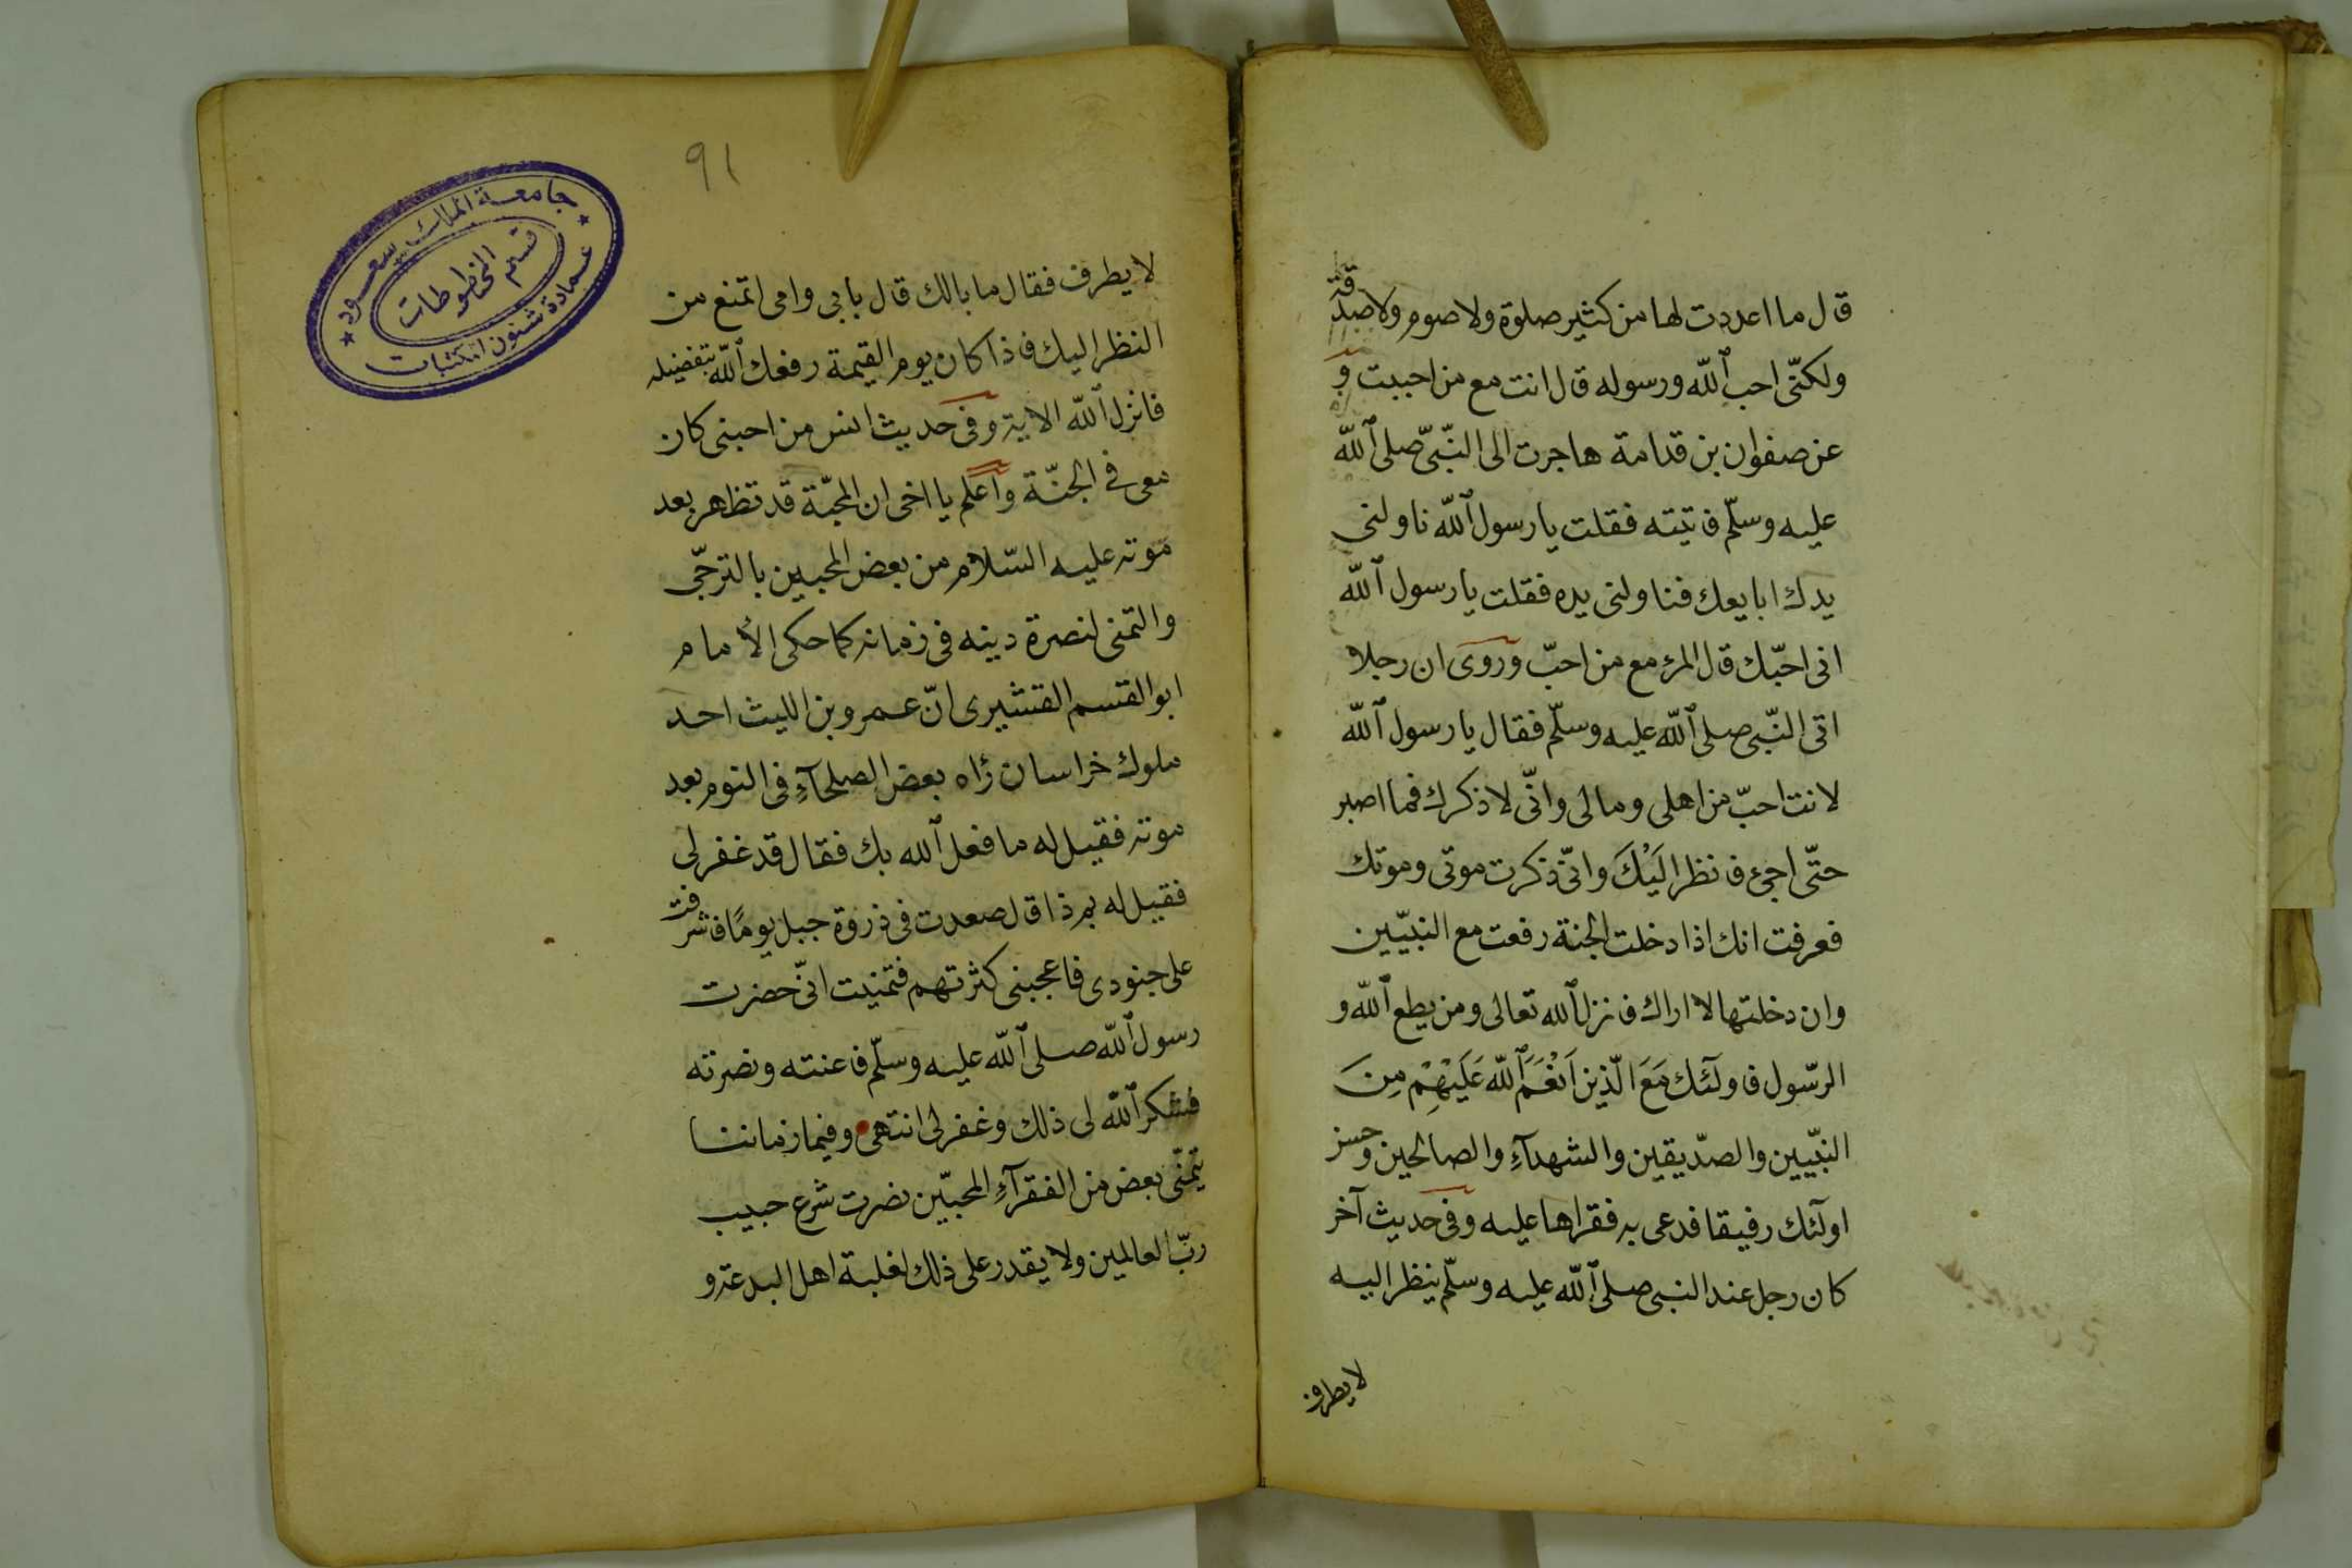 قال ما اعددت لها من كثير صلوة ولا صوم ولا صدقة
ولكنّى احب الله ورسوله قال انت مع من احببت و
عن صفوان بن قدامة هاجرت الى النّبىّ صلى الله
عليه وسلّم فاتيته فقلت يا رسول الله ناولنى
يدك ابايعك فناولنى يده فقلت يا رسول الله
انى احبّك قال المرء مع من احبّ وروى ان رجلا
اتى النّبى صلى الله عليه وسلّم فقال يا رسول الله
لانت احبّ من اهلى ومالى وانّى لاذكرك فما اصبر
حتّى اجئ فانظر اليَْكَ وانّى ذكرت موتى وموتك
فعرفت انك اذا دخلت الجنة رفعت مع النبيّين
وان دخلتها لا اراك فانزل الله تعالى ومن يطع الله و
الرّسول فاولَٓئك مَعَ الّذين اَنْعَمَ الله عَلَيْهِمْ مِنَ
النبّيين والصدّيقين والشهدآءِ والصالحين وحسن
اولٓئك رفيقا فدعى به فقراها عليه وفى حديث آخر
كان رجل عند النبى صلى الله عليه وسلّم ينظر اليه
لا يطرف
٩١
لا يطرف فقال ما بالك قال بابى وامى اتمنع من
النظر اليك فاذا كان يوم القيمة رفعك الله بتفضيله
فانزل الله الاية وفى حديث انس من احبنى كان
معى فى الجنّة واعلم يا اخى ان المحبّة قد تظاهر بعد
موته عليه السّلام من بعض المحبين بالترجّى
والتمنى لنصرة دينه فى زمانه كما حكى الأمام
ابو القسم القشيرى انّ عمرو بن الليث احد
ملوك خراسان رٔاه بعض الصلحآءِ فى النوم بعد
موته فقيل له ما فعل الله بك فقال قد غفر لى
فقيل له بم ذا قال صعدت فى ذروة جبل يومًا فاشرفت
على جنودى فاعجبنى كثرتهم فتمنيت انّى حضرت
رسول الله صلى الله عليه وسلّم فاعنته ونصرته
فشكر الله لى ذلك وغفر لى انتهى وفيما زماننا
يتمنّى بعض من الفقرآءِ المحبّين نصرت شرع حبيب
ربّ العالمين ولا يقدر على ذلك لغلبة اهل البدعة و
جامعة الملك سعود
قسم المخطوطات
عمادة شئون المكتبات